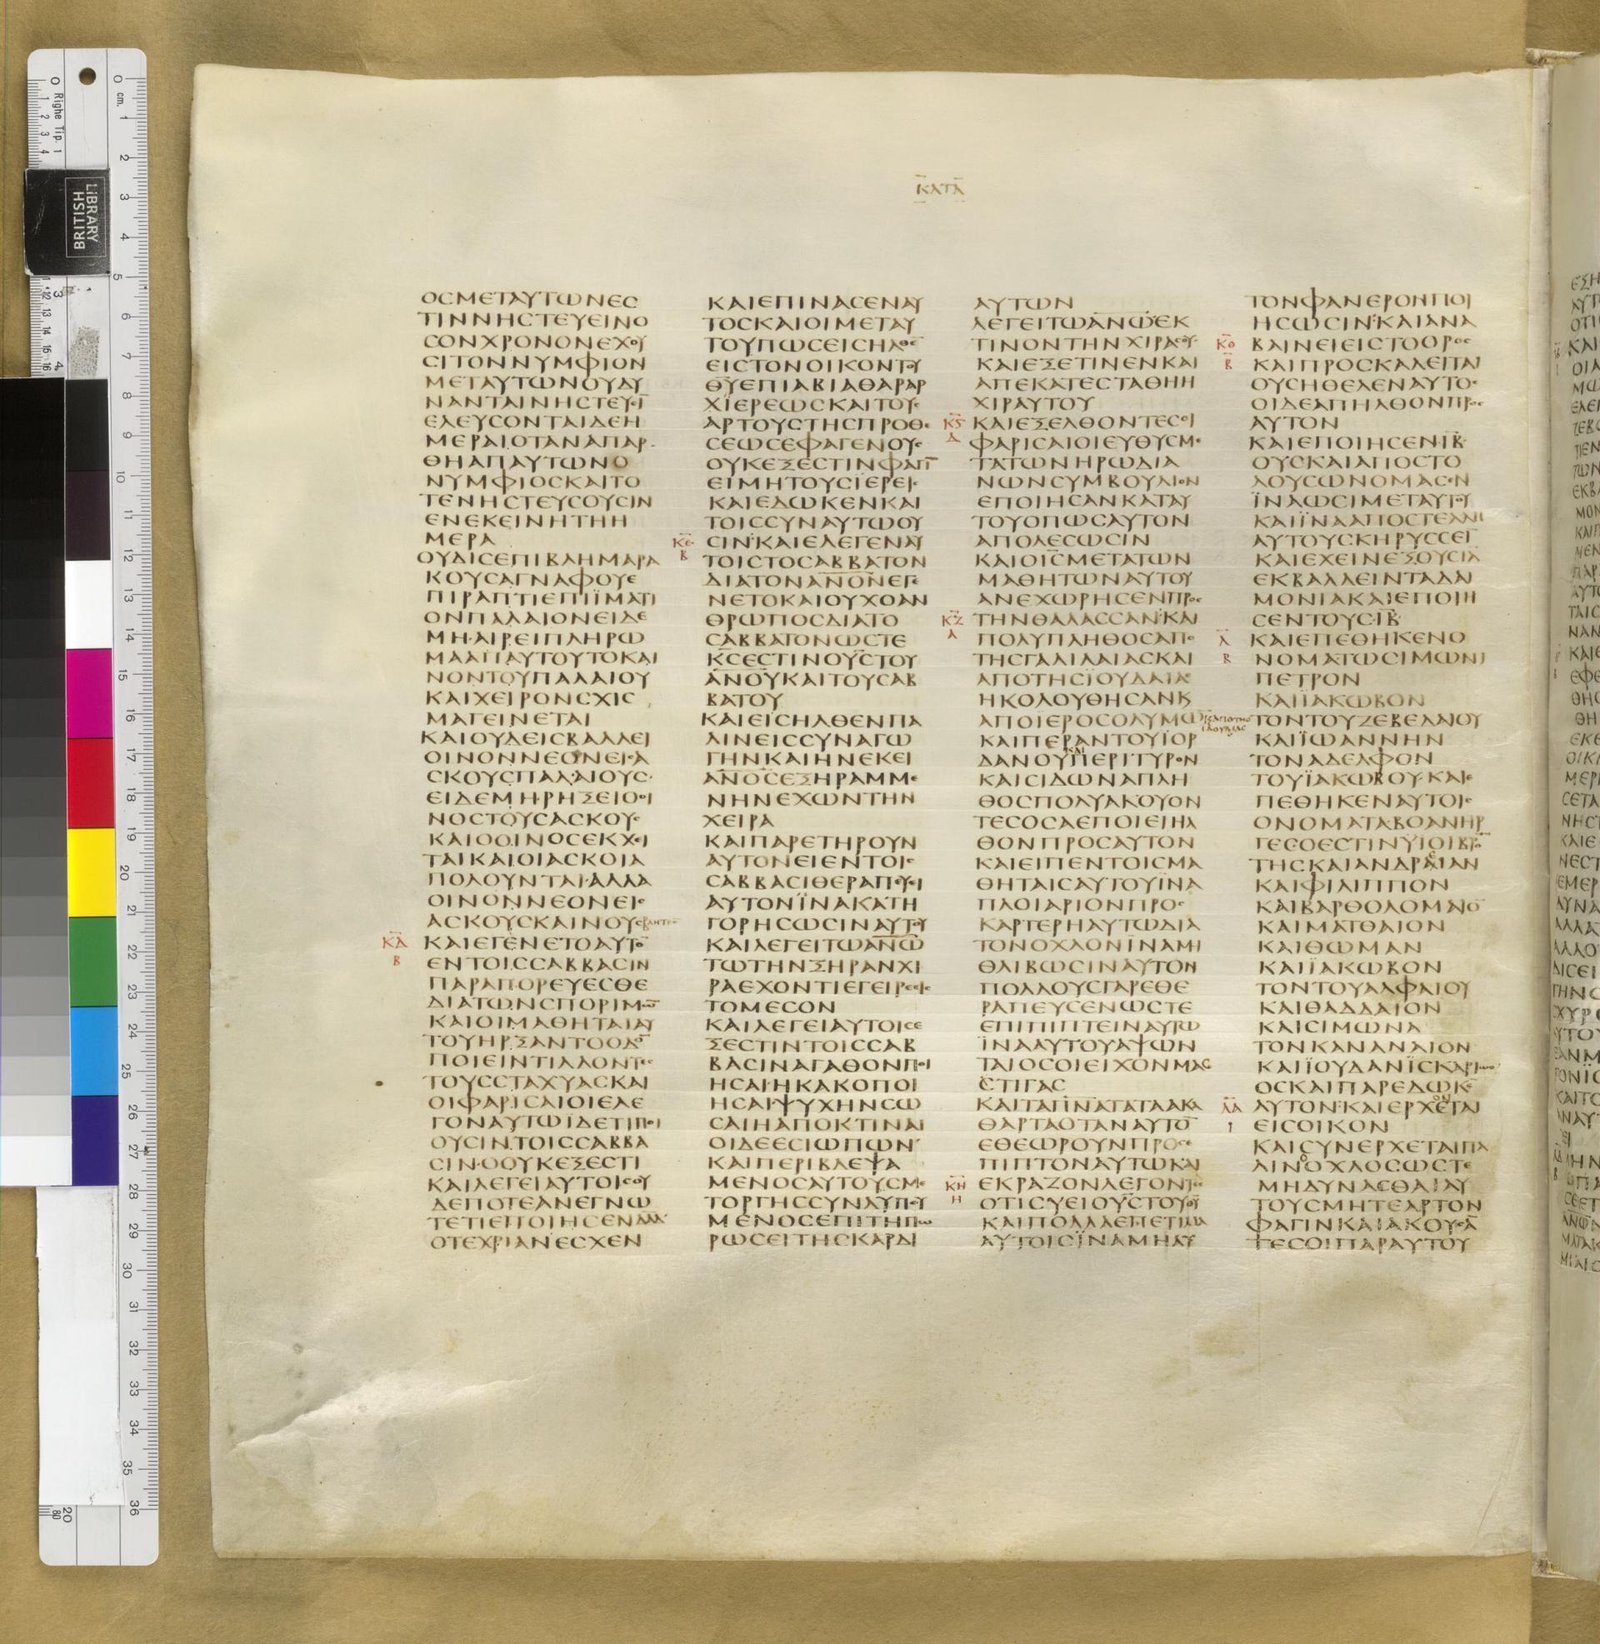 ΚΑΤΑ
ΟϹΜΕΤΑΥΤΩΝΕϹ
ΤΙΝΝΗϹΤΕΥΕΙΝΟ
ϹΟΝΧΡΟΝΟΝΕΧΟΥ
ϹΙΤΟΝΝΥΜΦΙΟΝ
ΜΕΤΑΥΤΩΝΟΥΔΥ
ΝΑΝΤΑΙΝΗϹΤΕΥΕΙ
ΕΛΕΥϹΟΝΤΑΙΔΕΗ
ΜΕΡΑΙΟΤΑΝΑΠΑΡ
ΘΗΑΠΑΥΤΩΝΟ
ΝΥΜΦΙΟϹΚΑΙΤΟ
ΤΕΝΗϹΤΕΥϹΟΥϹΙΝ
ΕΝΕΚΕΙΝΗΤΗΗ
ΜΕΡΑ
ΟΥΔΙϹΕΠΙΒΛΗΜΑΡΑ
ΚΟΥϹΑΓΝΑΦΟΥΕ
ΠΙΡΑΠΤΙΕΠΙΪΜΑΤΙ
ΟΝΠΑΛΑΙΟΝΕΙΔΕ
ΜΗΑΙΡΕΙΠΛΗΡΩ
ΜΑΑΠΑΥΤΟΥΤΟΚΑΙ
ΝΟΝΤΟΥΠΑΛΑΙΟΥ
ΚΑΙΧΕΙΡΟΝϹΧΙϹ
ΜΑΓΕΙΝΕΤΑΙ
ΚΑΙΟΥΔΕΙϹΒΑΛΛΕΙ
ΟΙΝΟΝΝΕΟΝΕΙΑ
ϹΚΟΥϹΠΑΛΑΙΟΥϹ
ΕΙΔΕΜΗΡΗΞΕΙΟΟΙ
ΝΟϹΤΟΥϹΑϹΚΟΥϹ
ΚΑΙΟΟΙΝΟϹΕΚΧΕΙ
ΤΑΙΚΑΙΟΙΑϹΚΟΙΑ
ΠΟΛΟΥΝΤΑΙΑΛΛΑ
ΟΙΝΟΝΝΕΟΝΕΙϹ
ΑϹΚΟΥϹΚΑΙΝΟΥϹ
ΚΔ ΚΑΙΕΓΕΝΕΤΟΑΥΤΟ̅
Β ΕΝΤΟΙϹϹΑΒΒΑϹΙΝ
ΠΑΡΑΠΟΡΕΥΕϹΘΕ
ΔΙΑΤΩΝϹΠΟΡΙΜΩ̅
ΚΑΙΟΙΜΑΘΗΤΑΙΑΥ
ΤΟΥΗΡΞΑΝΤΟΟΔΟ̅
ΠΟΙΕΙΝΤΙΛΛΟΝΤΕϹ
ΤΟΥϹϹΤΑΧΥΑϹΚΑΙ
ΟΙΦΑΡΙϹΑΙΟΙΕΛΕ
ΓΟΝΑΥΤΩΙΔΕΤΙΠΟΙ
ΟΥϹΙΝΤΟΙϹϹΑΒΒΑ
ϹΙΝΟΟΥΚΕΞΕϹΤΙ
ΚΑΙΛΕΓΕΙΑΥΤΟΙϹΟΥ
ΔΕΠΟΤΕΑΝΕΓΝΩ
ΤΕΤΙΕΠΟΙΗϹΕΝΔΑΔ
ΟΤΕΧΡΙΑΝΕϹΧΕΝ
ΚΑΙΕΠΙΝΑϹΕΝΑΥ
ΤΟϹΚΑΙΟΙΜΕΤΑΥ
ΤΟΥΠΩϹΕΙϹΗΛΘΕ̅
ΕΙϹΤΟΝΟΙΚΟΝΤΟΥ
Θ̅Υ̅ΕΠΙΑΒΙΑΘΑΡΑΡ
ΧΪΕΡΕΩϹΚΑΙΤΟΥϹ
ΑΡΤΟΥϹΤΗϹΠΡΟΘΕ
ϹΕΩϹΕΦΑΓΕΝΟΥϹ
ΟΥΚΕΞΕϹΤΙΝΦΑΓΙ̅
ΕΙΜΗΤΟΥϹΪΕΡΕΙϹ
ΚΑΙΕΔΩΚΕΝΚΑΙ
ΤΟΙϹϹΥΝΑΥΤΩΟΥ
ΚΕ ϹΙΝΚΑΙΕΛΕΓΕΝΑΥ
Β ΤΟΙϹΤΟϹΑΒΒΑΤΟΝ
ΔΙΑΤΟΝΑ̅Ν̅Ο̅Ν̅ΕΓΕ
ΝΕΤΟΚΑΙΟΥΧΟΑΝ
ΘΡΩΠΟϹΔΙΑΤΟ
ϹΑΒΒΑΤΟΝΩϹΤΕ
Κ̅Ϲ̅ΕϹΤΙΝΟΥ̅Ϲ̅ΤΟΥ
Α̅Ν̅Ο̅Υ̅ΚΑΙΤΟΥϹΑΒ
ΒΑΤΟΥ
ΚΑΙΕΙϹΗΛΘΕΝΠΑ
ΛΙΝΕΙϹϹΥΝΑΓΩ
ΓΗΝΚΑΙΗΝΕΚΕΙ
Α̅Ν̅Ο̅Ϲ̅ΕΞΗΡΑΜΜΕ
ΝΗΝΕΧΩΝΤΗΝ
ΧΕΙΡΑ
ΚΑΙΠΑΡΕΤΗΡΟΥΝ
ΑΥΤΟΝΕΙΕΝΤΟΙϹ
ϹΑΒΒΑϹΙΘΕΡΑΠΕΥΕΙ
ΑΥΤΟΝΪΝΑΚΑΤΗ
ΓΟΡΗϹΩϹΙΝΑΥΤΟΥ
ΚΑΙΛΕΓΕΙΤΩΑ̅Ν̅Ω̅
ΤΩΤΗΝΞΗΡΑΝΧΙ
ΡΑΕΧΟΝΤΙΕΓΕΙΡΕΕΙϹ
ΤΟΜΕϹΟΝ
ΚΑΙΛΕΓΕΙΑΥΤΟΙϹΕ
ΞΕϹΤΙΝΤΟΙϹϹΑΒ
ΒΑϹΙΝΑΓΑΘΟΝΠΟΙ
ΗϹΑΙΗΚΑΚΟΠΟΙ
ΗϹΑΙΨΥΧΗΝϹΩ
ϹΑΙΗΑΠΟΚΤΙΝΑΙ
ΟΙΔΕΕϹΙΩΠΩΝ
ΚΑΙΠΕΡΙΒΛΕΨΑ
ΜΕΝΟϹΑΥΤΟΥϹΜΕ
ΤΟΡΓΗϹϹΥΝΛΥΠΟΥ
ΜΕΝΟϹΕΠΙΤΗΠΩ
ΡΩϹΕΙΤΗϹΚΑΡΔΙ
ΑΥΤΩΝ
ΛΕΓΕΙΤΩΑ̅Ν̅Ω̅ΕΚ
ΤΙΝΟΝΤΗΝΧΙΡΑϹΟΥ
ΚΑΙΕΞΕΤΙΝΕΝΚΑΙ
ΑΠΕΚΑΤΕϹΤΑΘΗΗ
ΧΙΡΑΥΤΟΥ
ΚϚ ΚΑΙΕΞΕΛΘΟΝΤΕϹΟΙ
Δ ΦΑΡΙϹΑΙΟΙΕΥΘΥϹΜΕ
ΤΑΤΩΝΗΡΩΔΙΑ
ΝΩΝϹΥΜΒΟΥΛΙΟΝ
ΕΠΟΙΗϹΑΝΚΑΤΑΥ
ΤΟΥΟΠΩϹΑΥΤΟΝ
ΑΠΟΛΕϹΩϹΙΝ
ΚΑΙΟΙ̅Ϲ̅ΜΕΤΑΤΩΝ
ΜΑΘΗΤΩΝΑΥΤΟΥ
ΑΝΕΧΩΡΗϹΕΝΠΡΟϹ
ΚΖ ΤΗΝΘΑΛΑϹϹΑΝΚΑΙ
Α ΠΟΛΥΠΛΗΘΟϹΑΠΟ
ΤΗϹΓΑΛΙΛΑΙΑϹΚΑΙ
ΑΠΟΤΗϹΪΟΥΔΑΙΑϹ
ΗΚΟΛΟΥΘΗϹΑΝΚ
ΑΠΟΙΕΡΟϹΟΛΥΜΩ̅
ΚΑΙΠΕΡΑΝΤΟΥΪΟΡ
ΚΑΙ
ΔΑΝΟΥΠΕΡΙΤΥΡΟΝ
ΚΑΙϹΙΔΩΝΑΠΛΗ
ΘΟϹΠΟΛΥΑΚΟΥΟΝ
ΤΕϹΟϹΑΕΠΟΙΕΙΗΛ
ΘΟΝΠΡΟϹΑΥΤΟΝ
ΚΑΙΕΙΠΕΝΤΟΙϹΜΑ
ΘΗΤΑΙϹΑΥΤΟΥΪΝΑ
ΠΛΟΙΑΡΙΟΝΠΡΟϹ
ΚΑΡΤΕΡΗΑΥΤΩΔΙΑ
ΤΟΝΟΧΛΟΝΪΝΑΜΙ
ΘΛΙΒΩϹΙΝΑΥΤΟΝ
ΠΟΛΛΟΥϹΓΑΡΕΘΕ
ΡΑΠΕΥϹΕΝΩϹΤΕ
ΕΠΙΠΙΠΤΕΙΝΑΥΤΩ
ΪΝΑΑΥΤΟΥΑΨΩΝ
ΤΑΙΟϹΟΙΕΙΧΟΝΜΑϹ
ϹΤΙΓΑϹ
ΚΑΙΤΑΠ̅Ν̅Α̅ΤΑΤΑΑΚΑ
ΘΑΡΤΑΟΤΑΝΑΥΤΟ̅
ΕΘΕΩΡΟΥΝΠΡΟϹΕ
ΠΙΠΤΟΝΑΥΤΩΚΑΙ
ΚΗ ΕΚΡΑΖΟΝΛΕΓΟΝΤΕϹ
Η ΟΤΙϹΥΕΙΟΥ̅Ϲ̅ΤΟΥΘ̅Υ̅
ΚΑΙΠΟΛΛΑΕΠΕΤΙΜΑ
ΑΥΤΟΙϹΪΝΑΜΗΑΥ
ΤΟΝΦΑΝΕΡΟΝΠΟΙ
ΗϹΩϹΙΝΚΑΙΑΝΑ
ΚΘ ΒΑΙΝΕΙΕΙϹΤΟΟΡΟϹ
Β ΚΑΙΠΡΟϹΚΑΛΕΙΤΑΙ
ΟΥϹΗΘΕΛΕΝΑΥΤΟϹ
ΟΙΔΕΑΠΗΛΘΟΝΠΡΟϹ
ΑΥΤΟΝ
ΚΑΙΕΠΟΙΗϹΕΝΙ̅Β̅
ΟΥϹΚΑΙΑΠΟϹΤΟ
ΛΟΥϹΩΝΟΜΑϹΕΝ
ΪΝΑΩϹΙΜΕΤΑΥΤΟΥ
ΚΑΙΪΝΑΑΠΟϹΤΕΛΛΗ
ΑΥΤΟΥϹΚΗΡΥϹϹΕΙ̅
ΚΑΙΕΧΕΙΝΕΞΟΥϹΙΑ̅
ΕΚΒΑΛΛΕΙΝΤΑΔΑΙ
ΜΟΝΙΑΚΑΙΕΠΟΙΗ
ϹΕΝΤΟΥϹΙ̅Β̅
Λ ΚΑΙΕΠΕΘΗΚΕΝΟ
Β ΝΟΜΑΤΩϹΙΜΩΝΙ
ΠΕΤΡΟΝ
ΚΑΙΪΑΚΩΒΟΝ
ΤΟΝΤΟΥΖΕΒΕΔΑΙΟΥ
ΚΑΙΪΩΑΝΝΗΝ
ΤΟΝΑΔΕΛΦΟΝ
ΤΟΥΪΑΚΩΒΟΥΚΑΙΕ
ΠΕΘΗΚΕΝΑΥΤΟΙϹ
ΟΝΟΜΑΤΑΒΟΑΝΗΡ
ΓΕϹΟΕϹΤΙΝΥΙΟΙΒΡΟ̅
ΤΗϹΚΑΙΑΝΔΡΑΙΑΝ
ΚΑΙΦΙΛΙΠΠΟΝ
ΚΑΙΒΑΡΘΟΛΟΜΑΙΟ̅
ΚΑΙΜΑΤΘΑΙΟΝ
ΚΑΙΘΩΜΑΝ
ΚΑΙΪΑΚΩΒΟΝ
ΤΟΝΤΟΥΑΛΦΑΙΟΥ
ΚΑΙΘΑΔΔΑΙΟΝ
ΚΑΙϹΙΜΩΝΑ
ΤΟΝΚΑΝΑΝΑΙΟΝ
ΚΑΙΪΟΥΔΑΝΪϹΚΑΡΙ
ΟϹΚΑΙΠΑΡΕΔΩΚΕ̅
ΛΑ ΑΥΤΟΝΚΑΙΕΡΧΕΤΑΙ
Ι ΕΙϹΟΙΚΟΝ
ΚΑΙϹΥΝΕΡΧΕΤΑΙΠΑ
ΛΙΝΟΧΛΟϹΩϹΤΕ
ΜΗΔΥΝΑϹΘΑΙΑΥ
ΤΟΥϹΜΗΤΕΑΡΤΟΝ
ΦΑΓΙΝΚΑΙΑΚΟΥϹΑ̅
ΤΕϹΟΙΠΑΡΑΥΤΟΥ
LIBRARY
BRITISH
cm.